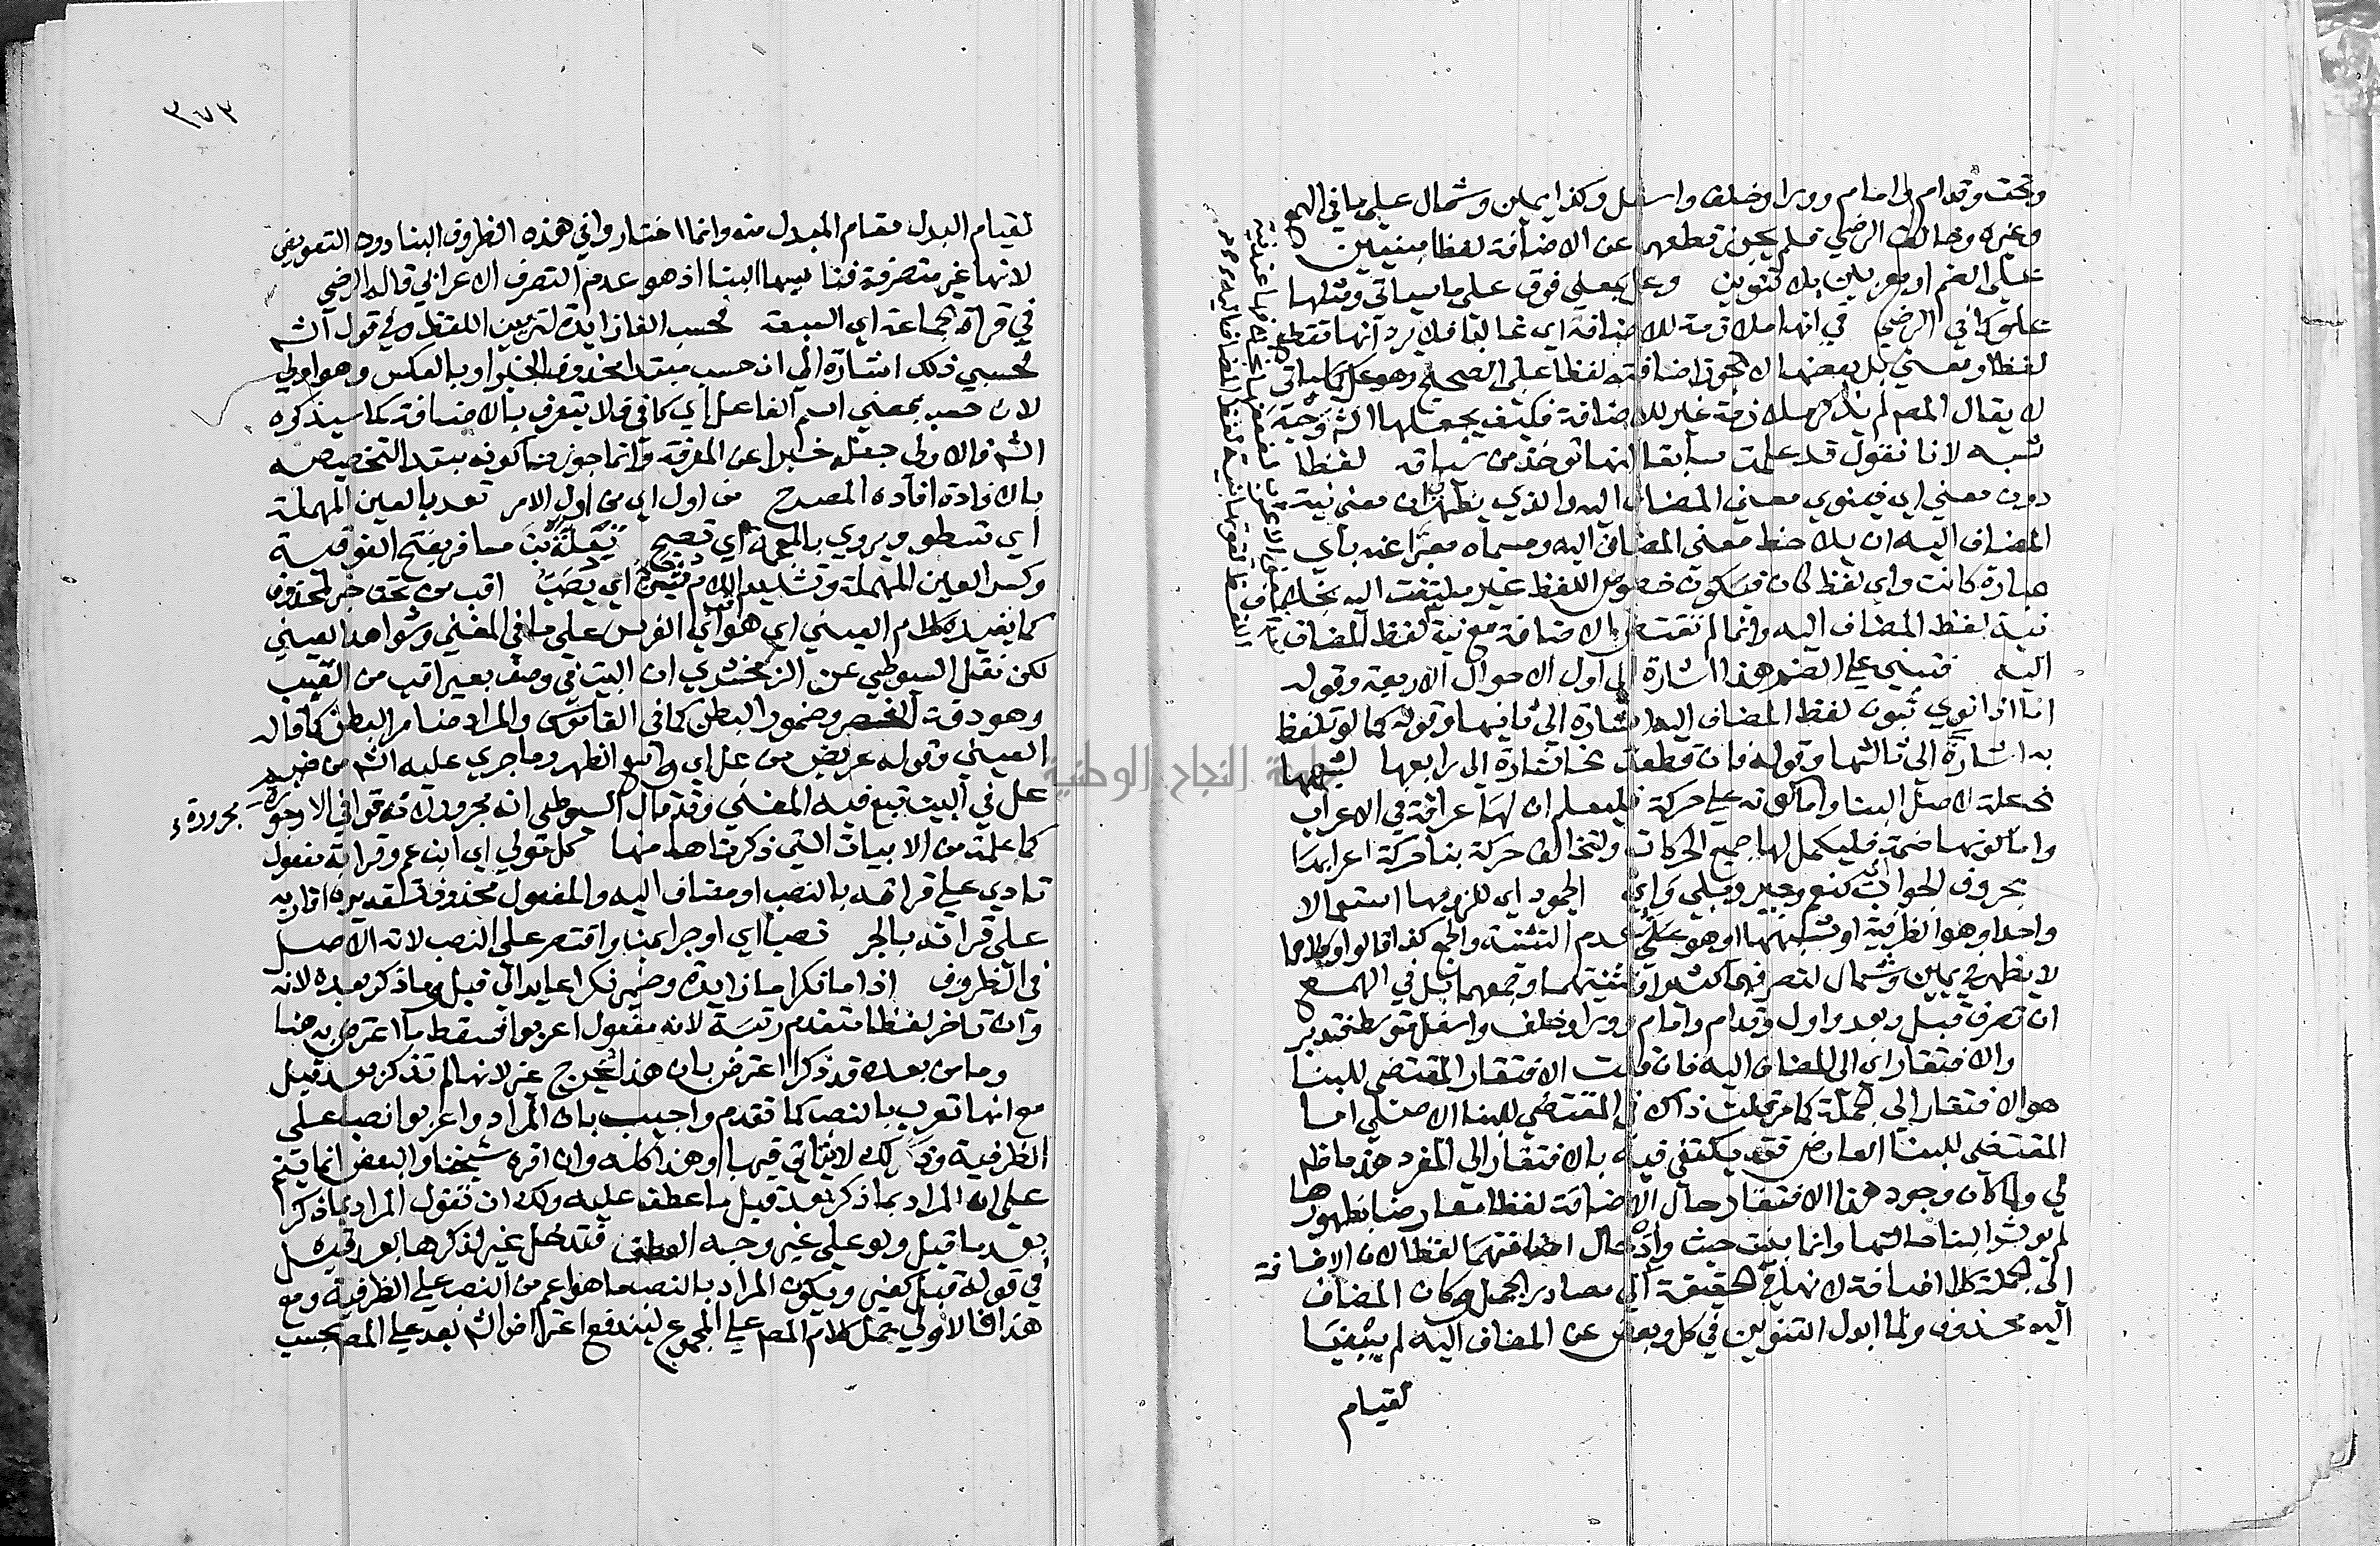 وتحت وقدام وامام وورا وخلف واسفل وكذا يمين وشمال على ما في الهمع
وغيره وخالف الرضي فلم يجوز قطعهما عن الاضافة لفظا مبنيين
على الضم او معربين بلا تنوين وعل بمعنى فوق على ما سياتي ومثلها
علو كما في الرضي في انها ملازمة للاضافة اي غالبا فلا يرد انها تقطع
لفظا ومعنى بل بعضها لا تجوز اضافته لفظا على الصحيح وهو عل كما ياتي
لا يقال المص لم يذكر ملازمة غير للاضافة فكيف يجعلها الش وجه
شبه لانا نقول قد علمت سابقا انها توخذ من سياقه لفظا
دون معنى اي فينوي معنى المضاف اليه والذي يظهر ان معنى نية
المضاف اليه ان يلاحظ معنى المضاف اليه ومسماه معبرا عنه باي
عبارة كانت واي لفظ كان فيكون خصوص اللفظ غير ملتفت اليه بخلاف
نية لفظ المضاف اليه وانما لم تقتض الاضافة مع نية لفظ المضاف
اليه فتبني على الضم هذا اشارة الى اول الاحوال الاربعة وقوله
اما اذا نوي ثبوت لفظ المضاف اليه اشارة الى ثانيها وقوله كما لو تلفظ
به اشارة الى ثالثها وقوله فان قطعت الخ اشارة الى رابعها لشبهها
الخ علة لاصل البنا واما كونه على حركة فليعلم ان لها عراقة في الاعراب
واما كونها ضمة فليكمل لها جميع الحركات ولتخالف حركة بنا حركة اعرابها
بحروف الجواب كنعم وجير وبلى واي الجمود اي للزومها استعمالا
واحدا وهو الظرفية او شبهها او هو على عدم التثنية والجمع كذا قالوا وكلاهما
لا يظهر في يمين وشمال لتصرفهما كثيرا وتثنيتهما وجمعهما بل في الهمع
ان تصرف قبل وبعد واول وقدام وامام وورا وخلف واسفل متوسط فتدبر
والافتقار اي الى المضاف اليه فان قلت الافتقار المقتضي للبنا
هو الافتقار الى الجملة كما مر قلت ذاك في المقتضي للبنا الاصلي اما
المقتضي للبنا العارض فقد يكتفي فيه بالافتقار الى المفرد هذا ما ظهر
لي ولما كان وجود هذا الافتقار حال الاضافة لفظا معارضا بظهورها
لم يوثر البنا حالتها وانما بنيت حيث واذ حال اضافتهما لفظا لان الاضافة
الى الجملة كلا اضافة لانها في الحقيقة الى مصادر الجمل فكان المضاف
اليه محذوف ولما ابدل التنوين في كل وبعض عن المضاف اليه لم يبنيا
لقيام
٣٧٣
لقيام البدل مقام المبدل منه وانما اختاروا في هذه الظروف البنا دون التعويض
لانها غير متصرفة فناسبها البنا اذ هو عدم التصرف الاعرابي قاله الرضي
في قراة الجماعة اي السبعة فحسب الفا زايدة لتزيين اللفظ وفي قول الش
فحسبي ذلك اشارة الى ان حسب مبتدا محذوف الخبر او بالعكس وهو اولى
لان حسب بمعنى اسم الفاعل اي كافي فلا يتعرف بالاضافة كما سيذكره
الش فالاولى جعله خبرا عن المعرفة وانما جوزنا كونه مبتدا لتخصيصه
بالاضافة افاده المصرح من اول اي من اول الامر تعدو بالعين المهملة
اي تسطو ويروي بالمعجمة اي تصبح تعلة بن مسافر بفتح الفوقية
وكسر العين المهملة وتشديد اللام يشن اي يصب اقب من تحت خبر لمحذوف
كما يفيده كلام العيني اي هو اي الفرس على ما في المغني وشواهد العيني
لكن نقل السيوطي عن الزمخشري ان البيت في وصف بعير اقب من القبب
وهو دقة الخصر وضمور البطن كما في القاموس والمراد ضامر البطن كما قاله
العيني وقوله عريض من عل اي واسع الظهر وما جرى عليه الش من ضم
عل في البيت تبع فيه المغني وقد قال السيوطي انه مجرور لانه قوافي الارجوزة مجرورة
كما علمت من الابيات التي ذكرتها منها كل مولى اي ابن عم وقرابة مفعول
نادى على قراته بالنصب او مضاف اليه والمفعول محذوف تقديره اقاربه
على قراته بالجر نصبا اي او جرا بمن واقتصر على النصب لانه الاصل
في الظروف اذا ما نكرا ما زايدة وضمير نكرا عايد الى قبل وما ذكر بعده لانه
وان تاخر لفظا متقدم رتبة لانه مفعول اعربوا فسقط ما اعترض به هنا
وما من بعده قد ذكرا اعترض بان هذا يخرج غير لانها لم تذكر بعد قبل
مع انها تعرب بالنصب كما تقدم واجيب بان المراد واعربوا نصبا على
الظرفية وذلك لا يتاتى فيها وهذا كله وان اقره شيخنا والبعض انما يتم
على ان المراد بما ذكر بعد قبل ما عطف عليه ولك ان تقول المراد بما ذكر
بعد ما قبل ولو على غير وجه العطف فتدخل غير لذكرها بعد قبل
في قوله قبل كغير ويكون المراد بالنصب ما هو اعم من النصب على الظرفية ومع
هذا فالاولى حمل كلام المص على المجموع ليندفع اعتراض الش بعد على المص بحسب